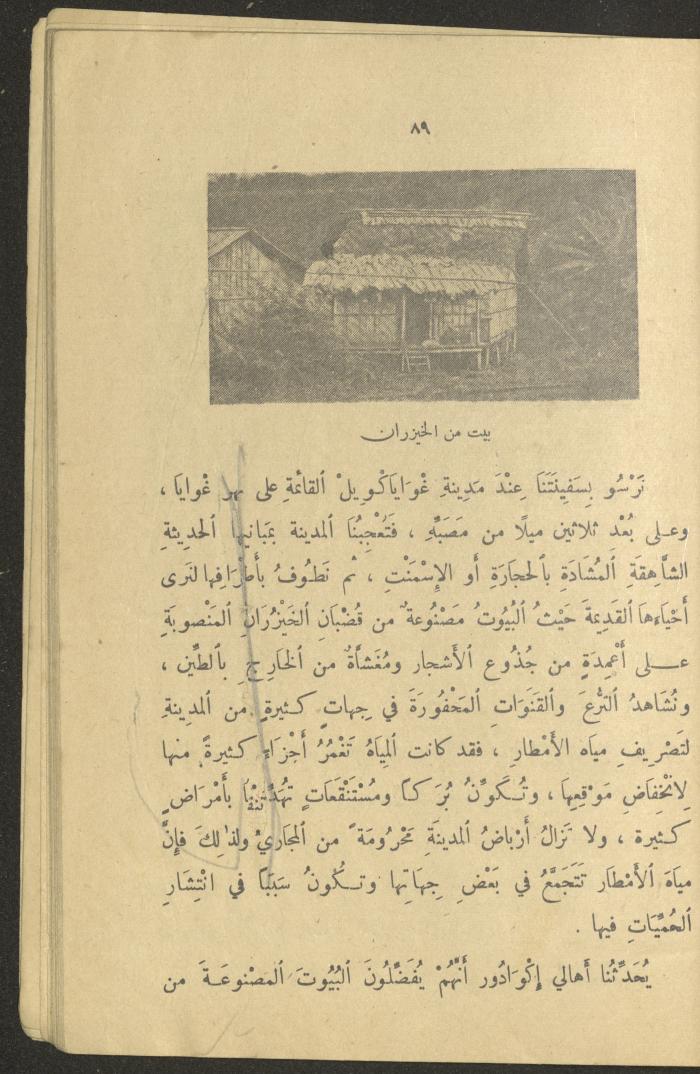 ٨٩
بيت من الخيزران
نَرْسُو بِسَفِينَتِنَا عِنْدَ مَدِينَةِ غْوَايَاكْوِيلْ ٱلقائمةِ على نهر غْوايَا ،
وعلى بُعْد ثلاثين ميلًا من مَصَبِّهِ ، فَتُعْجِبُنَا ٱلمدينة بمَبانيها ٱلحديثةِ
الشاهِقةِ ٱلمُشَادَةِ بٱلحجارَةِ أَو الإِسْمَنْتِ ، ثم نَطوفُ بأَطْرَافِها لنَرى
أَحْيَاءَها ٱلقَديمَةَ حَيْثُ ٱلبُيُوتُ مَصْنُوعةٌ من قُضْبَانِ ٱلخَيْزُرَانِ ٱلمَنْصوبَةِ
عـلى أَعْمِدَةٍ من جُذُوعِ ٱلأَشجار ومُغَشَّاةٌ من ٱلخَارِجِ بٱلطِّين ،
ونُشَاهدُ ٱلتُّرعَ وٱلقَنَوَاتِ ٱلمَحْفُورَةَ في جِهاتٍ كثيرةٍ من ٱلمدِينةِ
لتَصْرِيفِ مياه ٱلأَمْطارِ ، فقد كانت ٱلمِيَاهُ تَغْمُرُ أَجْزاءً كثيرةً منها
لِٱنْخِفَاضِ مَوْقِعِها ، وتُكَوِّنُ بُرَكًا ومُسْتَنْقَعَاتٍ بأَمْرَاضٍ
كثيرة ، ولا تَزالُ أَرْباضُ ٱلمدينَةِ مَحْرُومَةً من ٱلمجَاري ولذلِكَ فإِنَّ
مياهَ ٱلأَمْطار تَتَجَمَّعُ في بَعْضِ جِهَاتِها وتكُونُ سَبَبًا في ٱنْتِشَارِ
ٱلحُمَّيَاتِ فيها .
يُحَدِّثُنا أَهالي إِكْوَادُور أَنَّهُمْ يُفَضِّلُونَ ٱلبُيُوتَ ٱلمَصْنوعَـةَ من